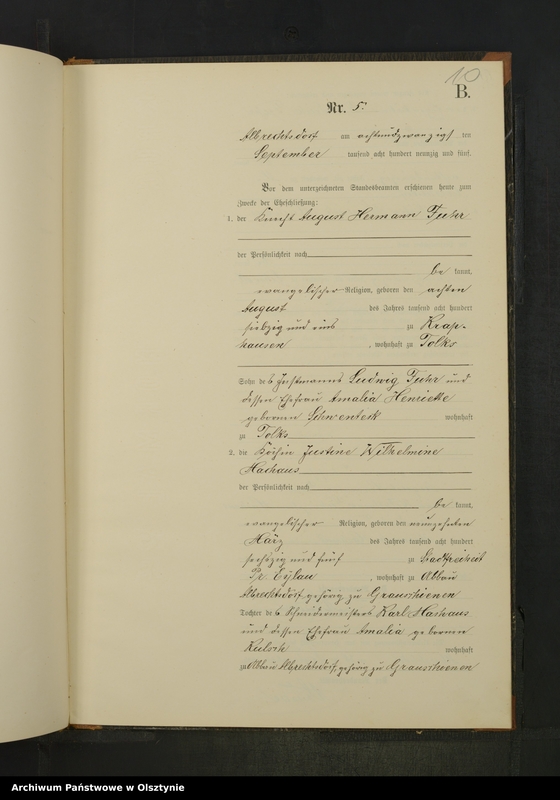 10
B.
Nr. 5.
Albrechtsdorf am achtundzwanzigsten
September tausend acht hundert neunzig und fünf.
Vor dem unterzeichneten Standesbeamten erschienen heute zum
Zwecke der Eheschließung:
1. der Knecht August Hermann Fuhr
der Persönlichkeit nach
be kannt,
evangelischer Religion, geboren den achten
August des Jahres tausend acht hundert
siebzig und eins zu Krap-
hausen, wohnhaft zu Tolks
Sohn des Instmanns Ludwig Fuhr und
dessen Ehefrau Amalia Henriette
geborenen Schwenteck wohnhaft
zu Tolks
2. die Köchin Justine Wilhelmine
Hashaus
der Persönlichkeit nach
be kannt,
evangelischer Religion, geboren den neunzehnten
März des Jahres tausend acht hundert
sechszig und fünf zu Stadtfreiheit
Pr. Eylau, wohnhaft zu Abbau
Albrechtsdorf gehörig zu Grauschienen
Tochter des Schneidermeisters Karl Hashaus
und dessen Ehefrau Amalia geborenen
wohnhaft
zu Abbau Albrechtsdorf, gehörig zu Grauschienen
Archiwum Państwowe w Olsztynie